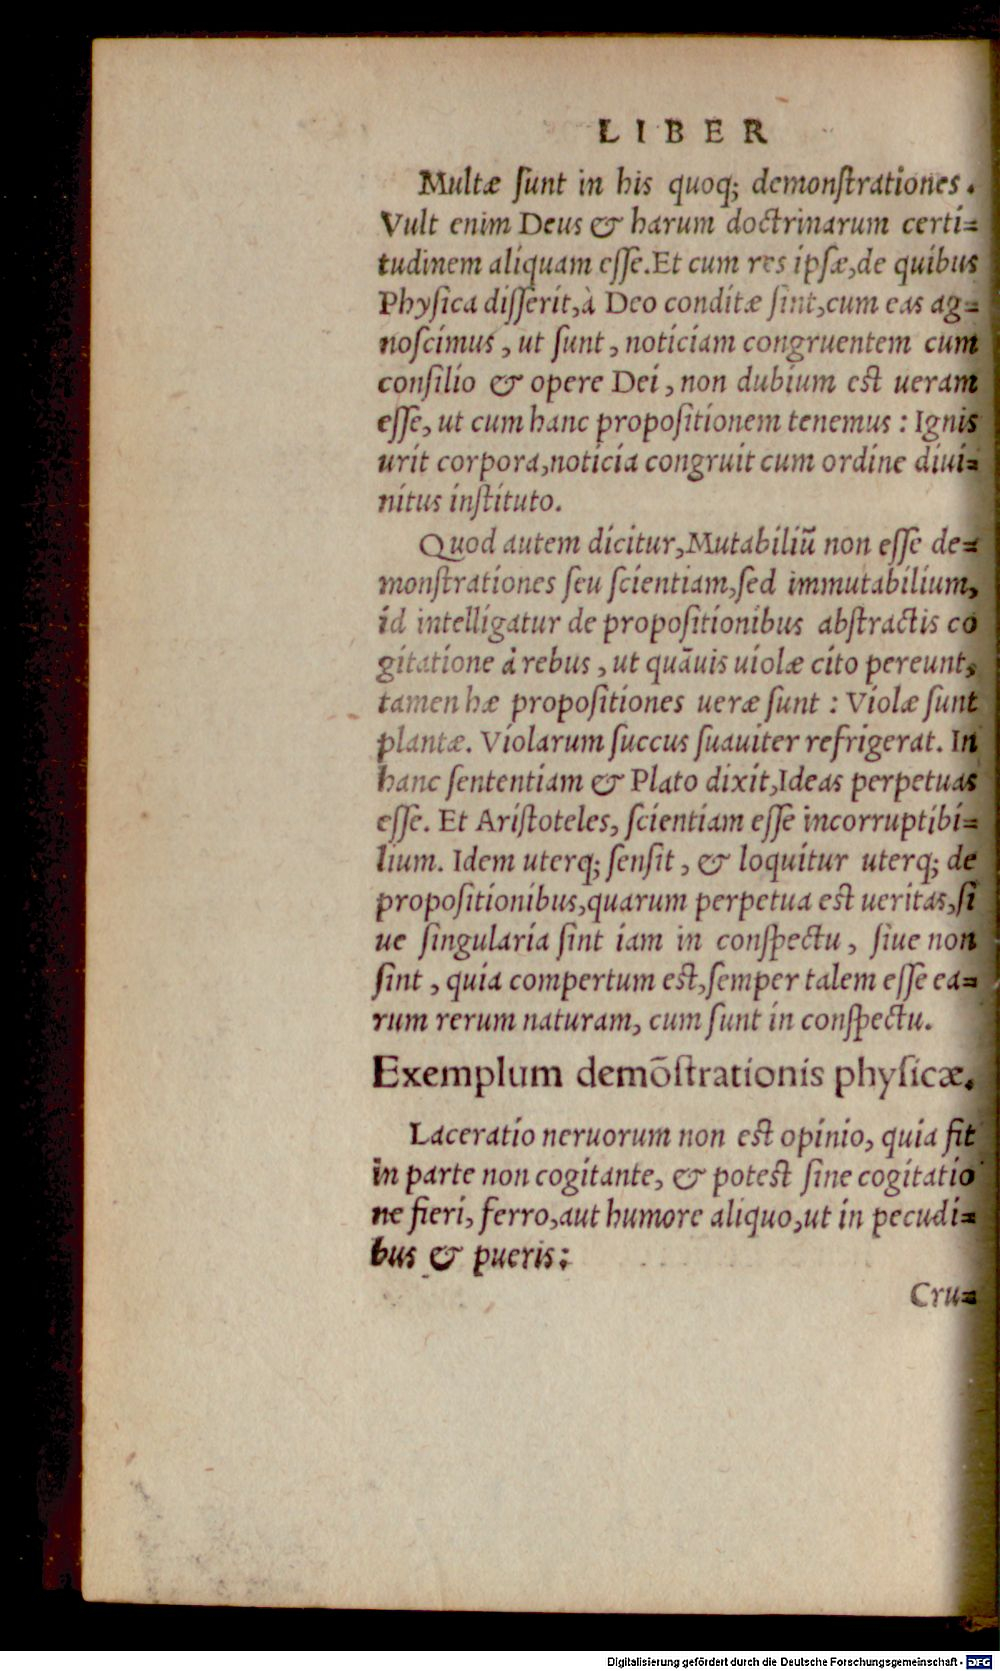 LIBER
Multæ ſunt in his quoq; demonſtrationes.
Vult enim Deus & harum doctrinarum certi=
tudinem aliquam eſſe. Et cum res ipſæ, de quibus
Phyſica diſſerit, à Deo conditæ ſint, cum eas ag=
noſcimus, ut ſunt, noticiam congruentem cum
conſilio & opere Dei, non dubium est ueram
eſſe, ut cum hanc propoſitionem tenemus: Ignis
urit corpora, noticia congruit cum ordine diui=
nitus inſtituto.
Quod autem dicitur, Mutabiliũ non eſſe de=
monſtrationes ſeu ſcientiam, ſed immutabilium,
id intelligatur de propoſitionibus abſtractis co
gitatione à rebus, ut quãuis uiolæ cito pereunt,
tamen hæ propoſitiones ueræ ſunt: Violæ ſunt
plantæ. Violarum ſuccus ſuauiter refrigerat. In
hanc ſententiam & Plato dixit, Ideas perpetuas
eſſe. Et Ariſtoteles, ſcientiam eſſe incorruptibi=
lium. Idem uterq; ſenſit, & loquitur uterq; de
propoſitionibus, quarum perpetua est ueritas, ſi
ue ſingularia ſint iam in conſpectu, ſiue non
ſint, quia compertum est, ſemper talem eſſe ea=
rum rerum naturam, cum ſunt in conſpectu.
Exemplum demõſtrationis phyſicæ.
Laceratio neruorum non est opinio, quia fit
in parte non cogitante, & potest ſine cogitatio
ne fieri, ferro, aut humore aliquo, ut in pecudi=
bus & pueris:
Cru=
Digitalisierung gefördert durch die Deutsche Forschungsgemeinschaft - DFG